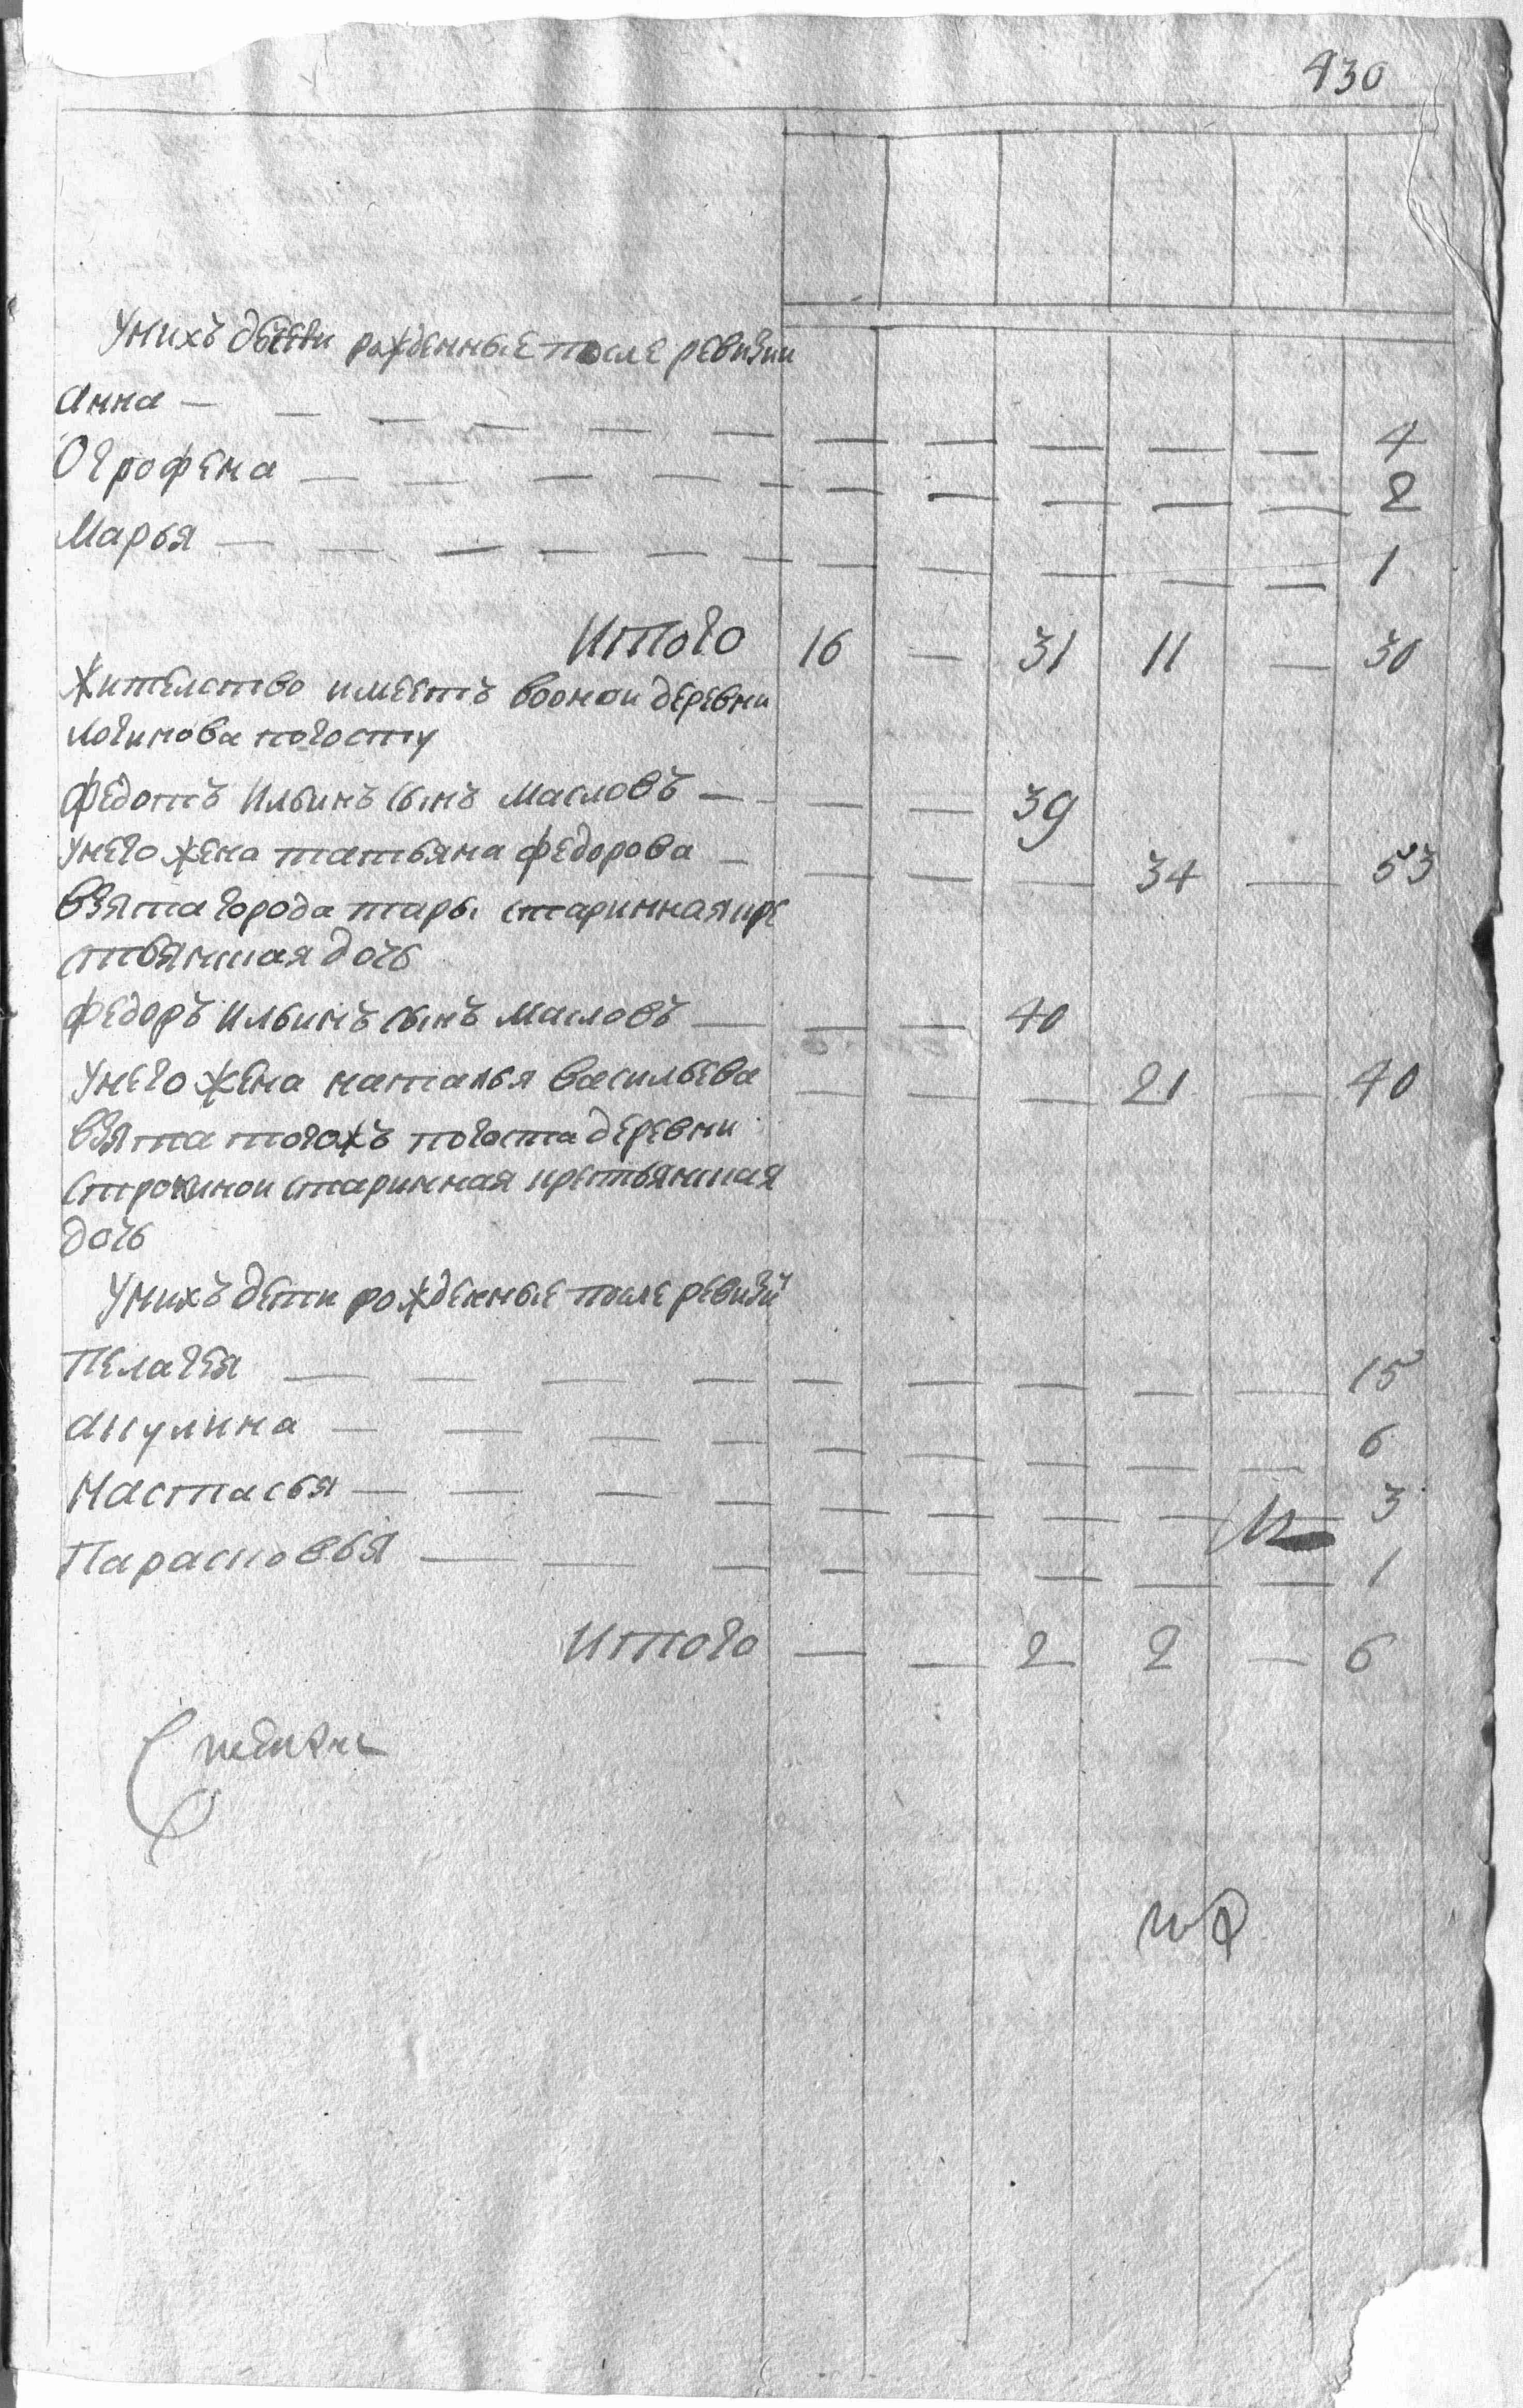 430
У нихъ дѣти рожденные после ревизии
Анна — — — — — — — — — — — 4
Огрофена — — — — — — — — — — 2
Марья — — — — — — — — — — — 1
Итого 16 — 31 11 — 30
Жителство имеетъ воонои деревни
Логинова погосту
Федотъ Ильинъ сынъ Масловъ — — — 39
У него жена татьяна федорова — — — — 34 — 53
Взята города тары старинная кре
стьянская дочь
Федоръ Ильинъ сынъ Масловъ — — — 40
У него жена наталья васильева — — — 21 — 40
Взята тогожъ погоста деревни
Строкинои старинная крестьянская
дочь
У нихъ дети рожденные после ревизи
Пелагея — — — — — — — — — 15
Акулина — — — — — — — — — 6
Настасья — — — — — — — — — 3
Парасковья — — — — — — — — 1
Итого — — 2 2 — 6